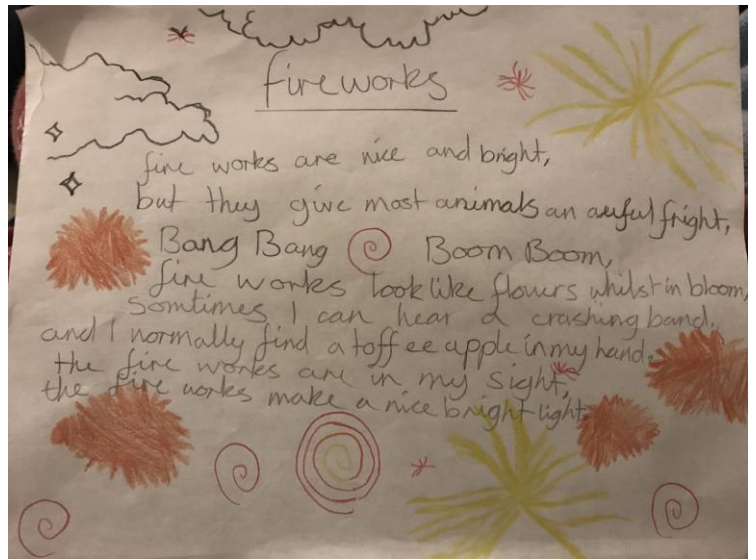 fireworks
fire works are nice and bright,
but they give most animals an awful fright,
Bang Bang Boom Boom,
fire works look like flowers whilst in bloom,
Somtimes I can hear a crashing band.
and I normally find a toffee apple in my hand.
the fire works are in my sight,
the fire works make a nice bright light.